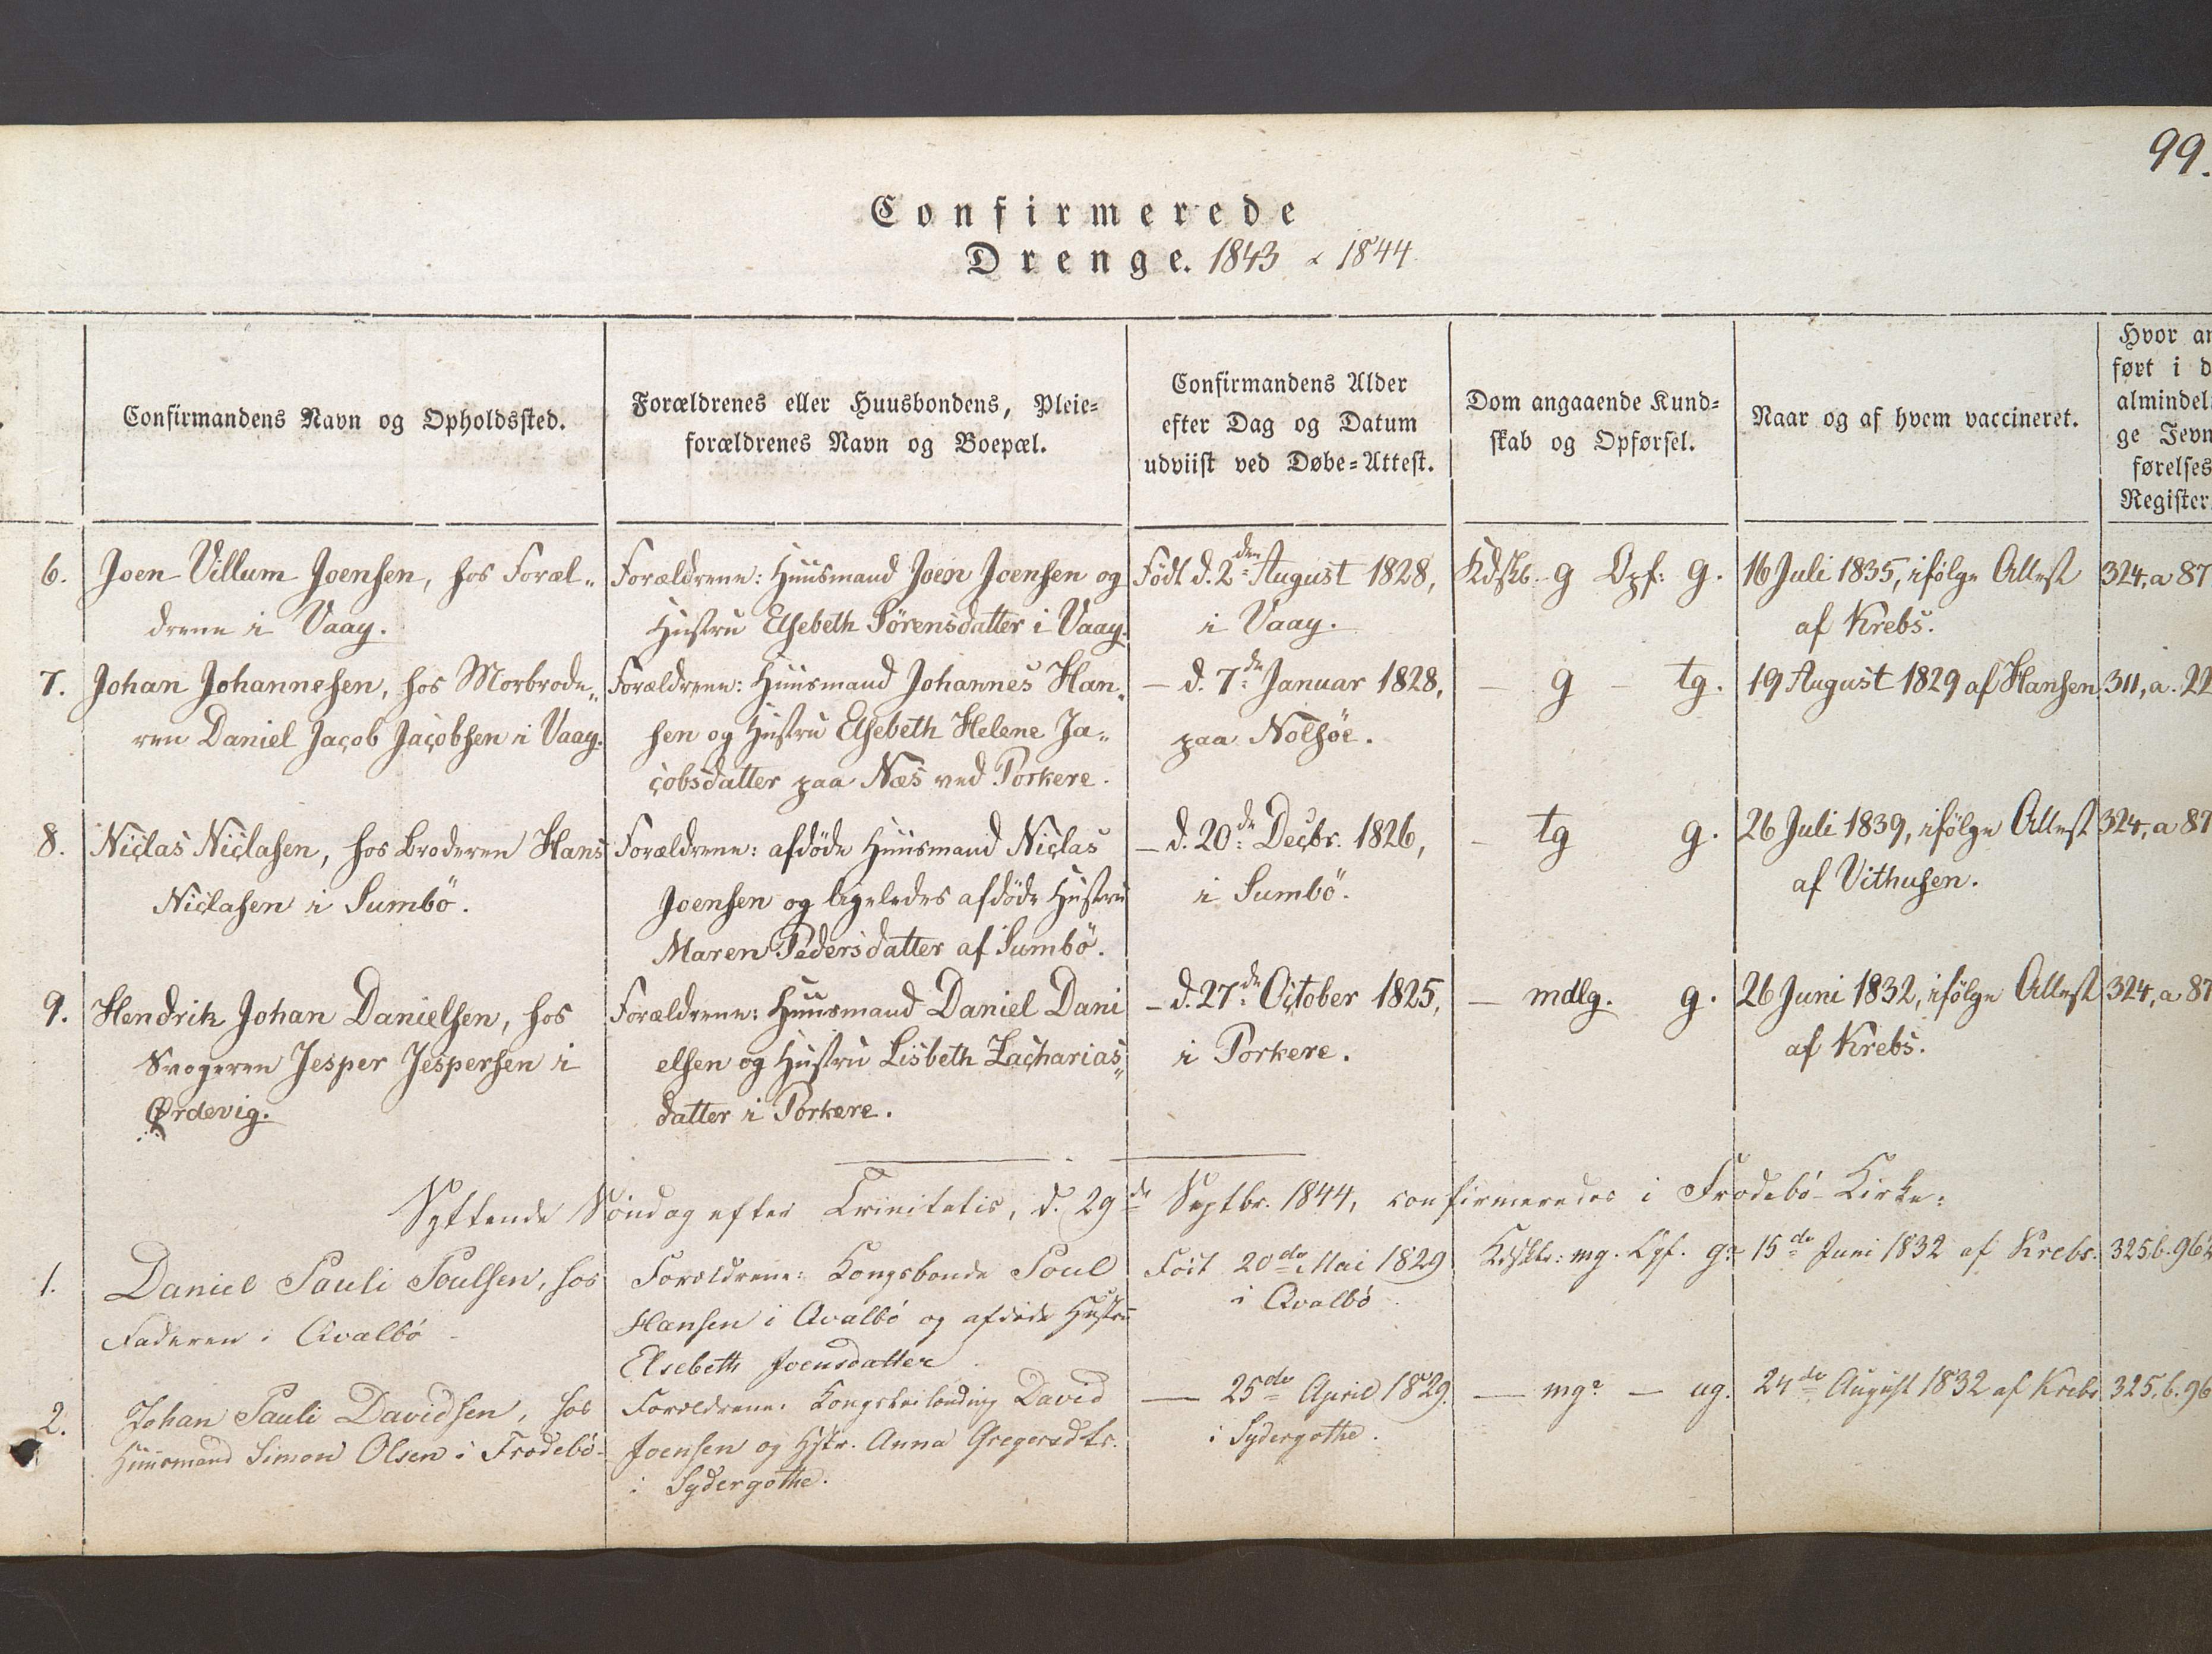 99.
Confirmerede
Drenge. 1843 & 1844.
Confirmandens Navn og Opholdssted.
Forældrenes eller Huusbondens, Pleie-
forældrenes Navn og Boepæl.
Confirmandens Alder
efter Dag og Datum
udviist ved Døbe-Attest.
Dom angaaende Kund-
skab og Opførsel.
Naar og af hvem vaccineret.
Hvor an
ført i d
almindel
ge Jevn
førelses
Register
6.
Joen Villum Joensen, hos Foræl-
drene i Vaag.
Forældrene: Huusmand Joen Joensen og
Hustru Elsebeth Sörensdatter i Vaag.
Födt d. 2den August 1828,
i Vaag.
Kdskb. g Opf: g.
16 Juli 1835, ifölge Attest
af Krebs.
324, a 87
7.
Johan Johannesen, hos Morbrode-
ren Daniel Jacob Jacobsen i Vaag.
Forældrene: Huusmand Johannes Han-
sen og Hustru Elsebeth Helene Ja-
cobsdatter paa Næs ved Porkere.
— d. 7de Januar 1828,
paa Nolsöe.
— g — tg.
19 August 1829 af Hansen
311, a. 22
8.
Niclas Niclasen, hos Broderen Hans
Niclasen i Sumbö.
Forældrene: afdöde Huusmand Niclas
Joensen og ligeledes afdöde Hustru
Maren Pedersdatter af Sumbö.
— d. 20de Decbr. 1826,
i Sumbö.
— tg g.
26 Juli 1839, ifölge Attest
af Vithusen.
324, a 87
9.
Hendrik Johan Danielsen, hos
Svogeren Jesper Jespersen i
Ørdevig.
Forældrene: Huusmand Daniel Dani
elsen og Hustru Lisbeth Zacharias-
datter i Porkere.
— d. 27de October 1825,
i Porkere.
— mdlg. g.
26 Juni 1832, ifölge Attest
af Krebs.
324, a 87
Syttende Söndag efter Trinitatis, d. 29de Septbr. 1844, confirmeredes i Frodebö Kirke:
1.
Daniel Pauli Poulsen, hos
Faderen i Qvalbö
Forældrene: Kongsbonde Poul
Hansen i Qvalbö og afdöde Hustru
Elsebeth Joensdatter
Födt 20de Mai 1829
i Qvalbö.
Kdskb: mg. Opf. g.
15de Juni 1832 af Krebs.
325 b. 96
2.
Johan Pauli Davidsen, hos
Huusmand Simon Olsen i Frodebö
Forældrene: David
Joensen og Hstr. Anna Gregersdtr.
i Sydergothe.
— 25de April 1829.
i Sydergothe.
— mg — ug.
24de August 1832 af Krebs
325. b. 96